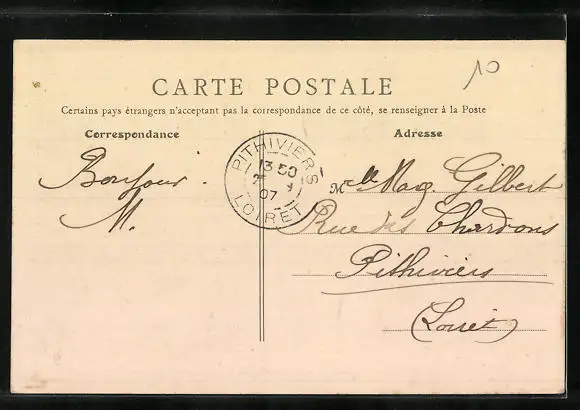 10
CARTE POSTALE
Certains pays étrangers n'acceptant pas la correspondance de ce côté, se renseigner à la Poste
Correspondance
Adresse
Bonjour.
M.
PITHIVIERS
13 50
07
LOIRET
Mlle Marg. Gilbert
Rue des Chardons
Pithiviers
(Loiret)